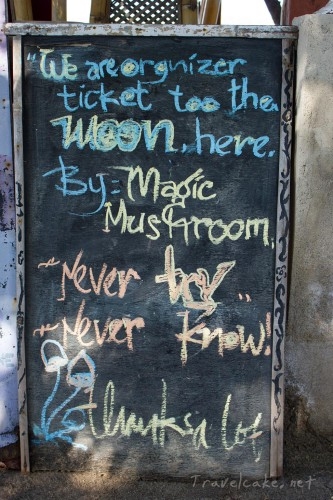 "We are orgnizer
ticket too the
moon, here.
By = Magic
Mushroom,
~Never try..
~Never Know!
thanks a lot
Travelcake.net